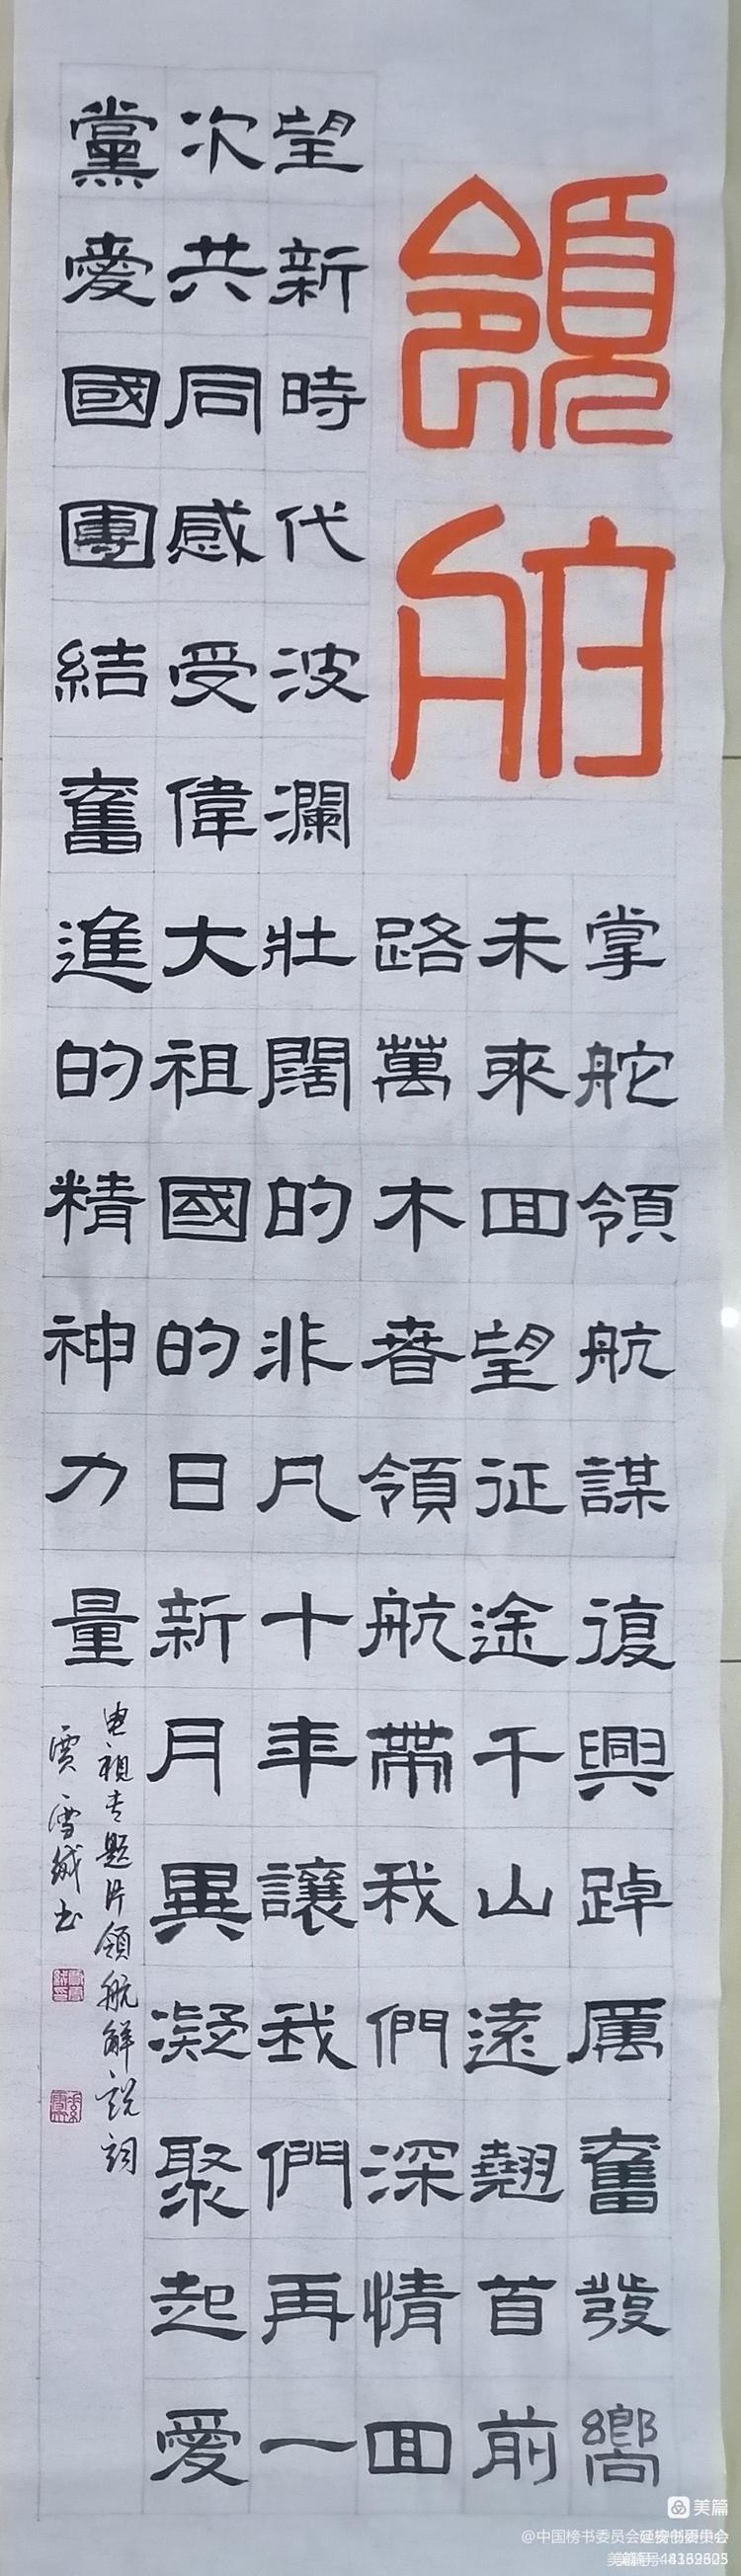 領航
掌舵領航謀復興踔厲奮發嚮
未來回望征途千山遠翹首前
路萬木春領航帶我們深情回
望新時代波瀾壯闊的非凡十年讓我們再一
次共同感受偉大祖國的日新月異凝聚起愛
黨愛國團結奮進的精神力量
電視专题片領航解說詞
賈雪緘书
美篇
@中国榜书委员会
美篇号